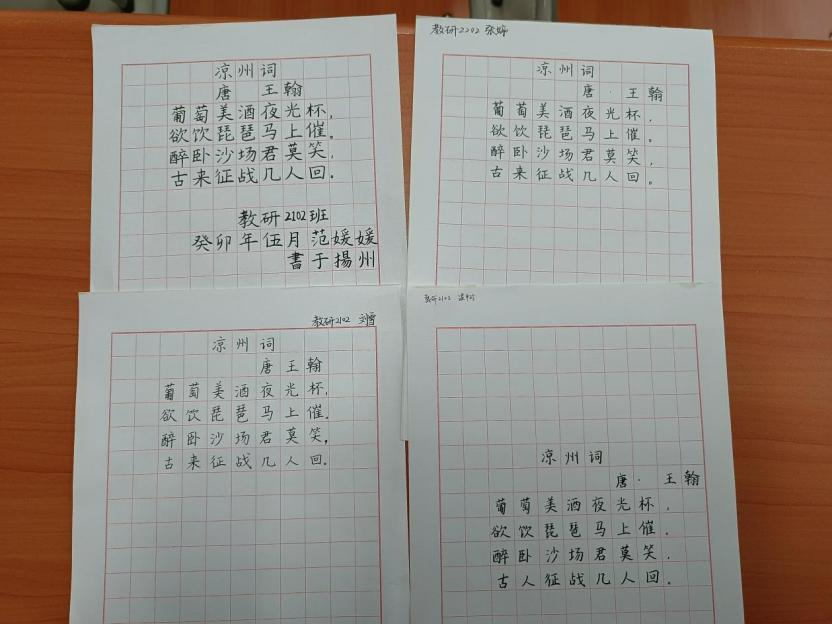 凉州词
唐 王翰
葡萄美酒夜光杯，
欲饮琵琶马上催。
醉卧沙场君莫笑，
古来征战几人回。
教研2102班
癸卯年伍月范媛媛
書于揚州
教研2202 张婷
凉州词
唐·王翰
葡萄美酒夜光杯，
欲饮琵琶马上催。
醉卧沙场君莫笑，
古来征战几人回。
教研2102 刘雪
凉州词
唐王翰
葡萄美酒夜光杯，
欲饮琵琶马上催。
醉卧沙场君莫笑，
古来征战几人回。
教研2102
凉州词
唐·王翰
葡萄美酒夜光杯，
欲饮琵琶马上催。
醉卧沙场君莫笑，
古人征战几人回。